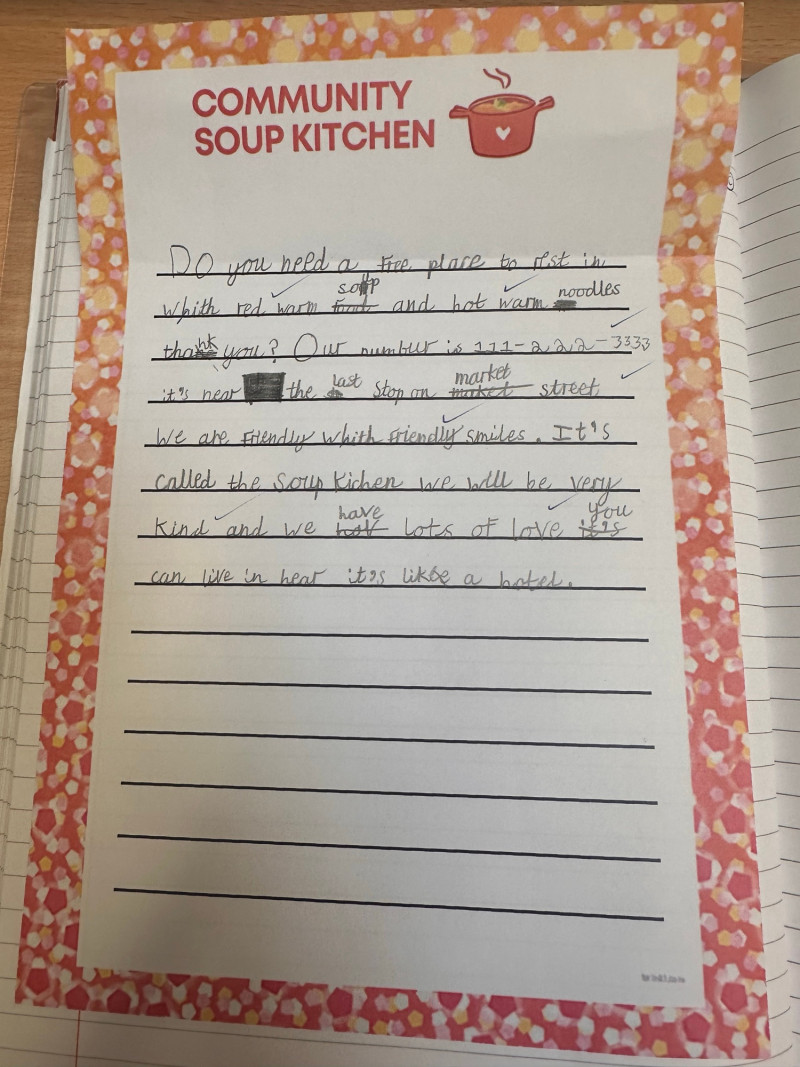 COMMUNITY
SOUP KITCHEN
Do you need a free place to rest in
soup noodles
whith red warm food and hot warm
thank you? Our number is 111-222-3333
last market
it's near the Stop on market street
We are Friendly whith Friendly smiles. It's
called the Soup Kichen we will be very
have you
kind and we hot lots of love it's
can live in hear it's like a hotel.